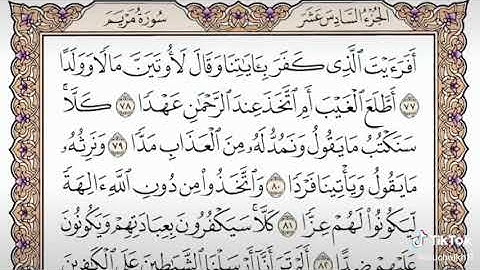 الجزء السادس عشر
سورة مريم
أَفَرَءَيْتَ ٱلَّذِى كَفَرَ بِـَٔايَٰتِنَا وَقَالَ لَأُوتَيَنَّ مَالًا وَوَلَدًا
٧٧ أَطَّلَعَ ٱلْغَيْبَ أَمِ ٱتَّخَذَ عِندَ ٱلرَّحْمَٰنِ عَهْدًا ٧٨ كَلَّا ۚ
سَنَكْتُبُ مَا يَقُولُ وَنَمُدُّ لَهُۥ مِنَ ٱلْعَذَابِ مَدًّا ٧٩ وَنَرِثُهُۥ
مَا يَقُولُ وَيَأْتِينَا فَرْدًا ٨٠ وَٱتَّخَذُوا۟ مِن دُونِ ٱللَّهِ ءَالِهَةً
لِّيَكُونُوا۟ لَهُمْ عِزًّا ٨١ كَلَّا ۚ سَيَكْفُرُونَ بِعِبَادَتِهِمْ وَيَكُونُونَ
عَلَيْهِمْ ضِدًّا ٨٢ أَلَمْ تَرَ أَنَّآ أَرْسَلْنَا ٱلشَّيَٰطِينَ عَلَى ٱلْكَٰفِرِينَ
TikTok